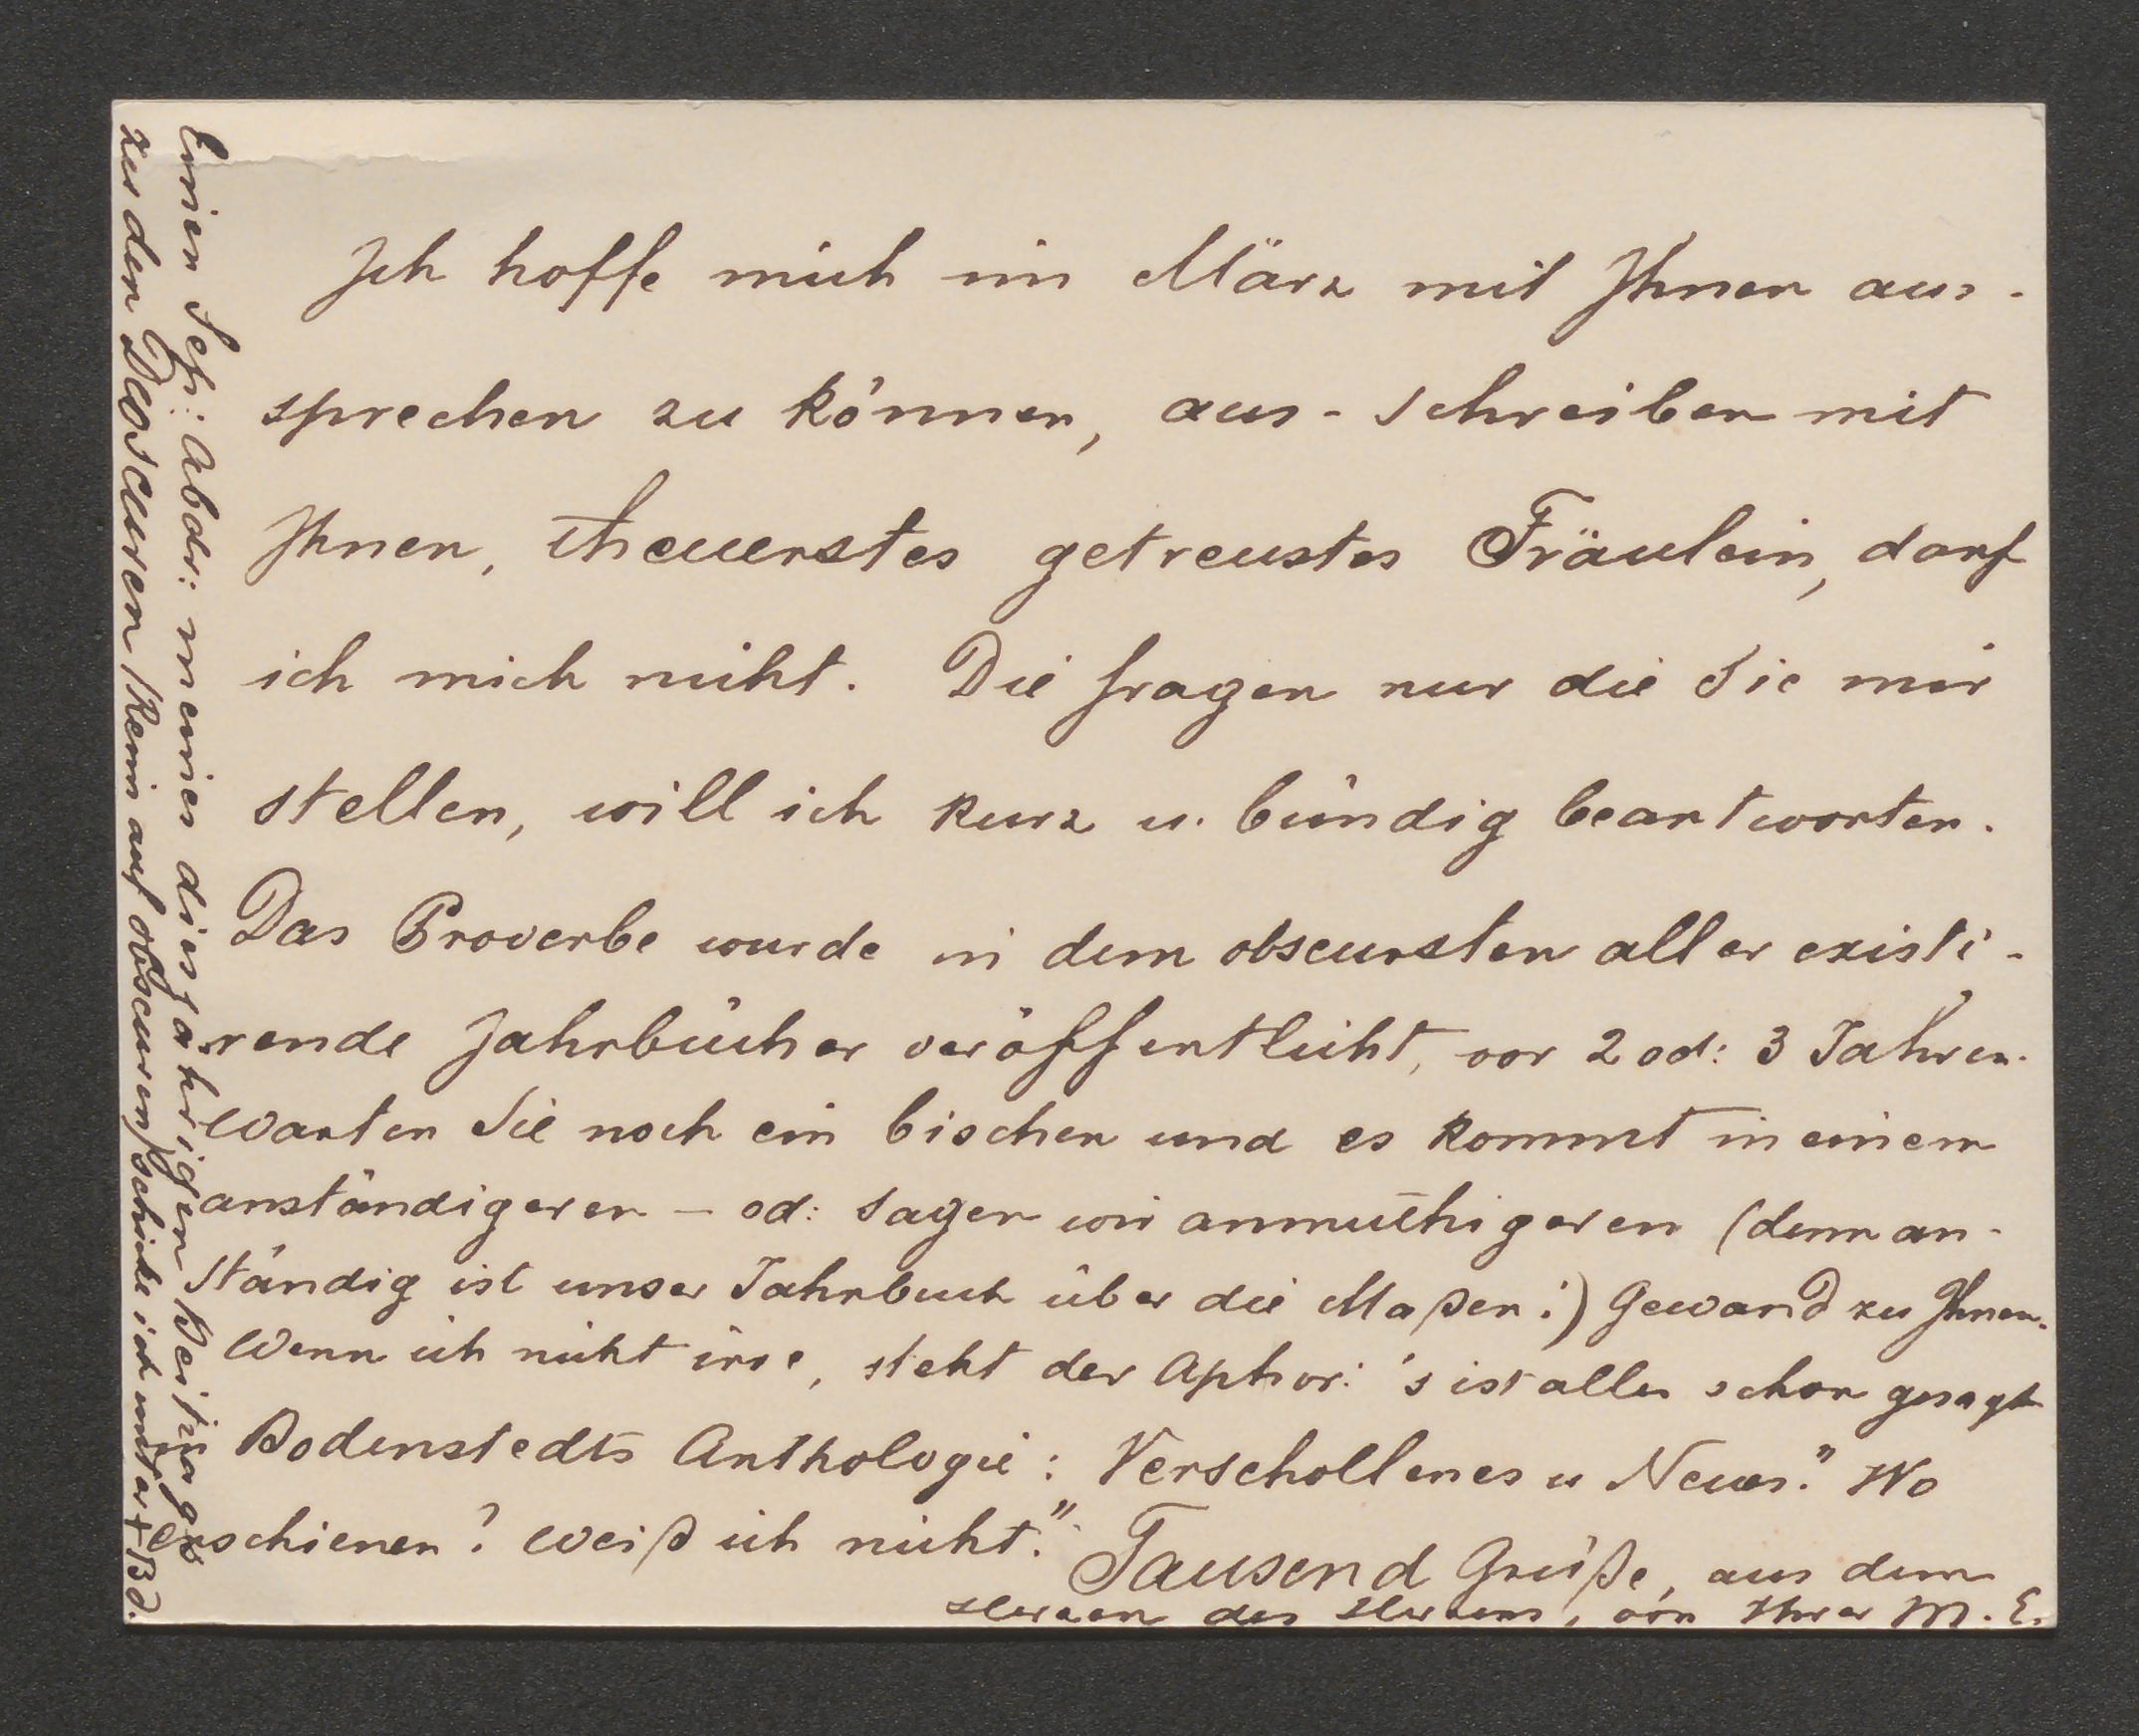 Ich hoffe mich im März mit Ihnen aus-
sprechen zu können, aus-schreiben mit
Ihnen, theuerstes getreustes Fräulein, darf
ich mich nicht. Die fragen nur die Sie mir
stellen, will ich kurz u. bündig beantworten.
Das Proverbe wurde in dem obscursten aller existi-
rende Jahrbücher veröffentlicht, vor 2 od: 3 Jahren.
Warten Sie noch ein bischen und es kommt in einem
anständigeren – od: sagen wir anmuthigeren (denn an-
ständig ist unser Jahrbuch über die Maßen!) Gewand zu Ihnen.
Wenn ich nicht irre, steht der Aphor: 's ist alles schon gesagt
in Bodenstedts Anthologie: Verschollenes u Neues." Wo
erschienen? Weiß ich nicht."
Tausend Grüße, aus dem
Herzen des Herzens, von Ihrer M. E.
Einen Sep: Abdr: meines diesjährigen Beitrages
zu den Dioscuren /Reim auf obscuren/ schicke ich unter + Bd.